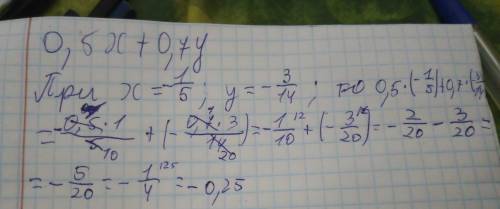 0,5x+0,7y
При x=-1/5; y=-3/14; то 0,5·(-1/5)+0,7·(3/14
=-0,5·1/5 10+(-0,7·3/14 20)=-1/10+(-3/20)=-2/20-3/20=
=-5/20=-1/4=-0,25